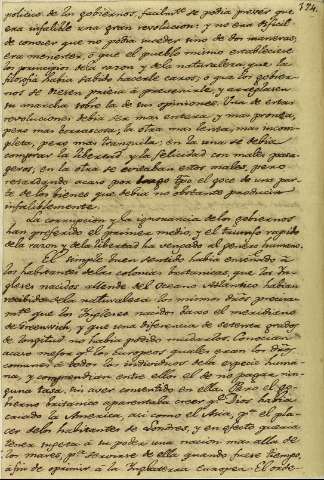 174.
politico de los gobiernos, facilmte se podia prever que
era infalible una gran revolucion; y no era dificil
de conocer que no podia suceder sino de dos maneras;
era menester, o que el pueblo mismo estableciese
los principios de la razon y de la naturaleza, que la
filosofia habia sabido hacerle caros, o que los gobier-
nos se diesen priesa à prevenirle, y arreglasen
su marcha sobre la de sus opiniones. Una de estas
revoluciones debia ser mas entera, y mas pronta,
pero mas borrascosa; la otra mas lenta, mas incom-
pleta, pero mas tranquila; en la una se debia
comprar la libertad y la felicidad con males pasa-
geros, en la otra se evitaban estos males, pero
retardando acaso por largo tpo el goce de una par-
te de los bienes que debia no obstante producir
infaliblemente.
La corrupcion y la ignorancia de los gobiernos
han preferido el primer medio, y el triunfo rapido
de la razon y de la libertad ha vengado al genero humano.
El simple buen sentido habia enseñado à
los habitantes de las colonias britanicas, que los In-
gleses nacidos allende del Oceano Atlantico habian
recibido de la naturaleza los mismos dros precisa-
mte que los Ingleses nacidos baxo el meridiano
de Greenwich, y que una diferencia de setenta grados
de longitud no habia podido mudarlos. Conocian
acaso mejor qe los Europeos quales eran los dros
comunes à todos los individuos de la especie huma-
na, y comprendian entre ellos el de no pagar nin-
guna tasa, sin haver consentido en ella. Pero el go-
bierno britanico aparentaba creer qe Dios habia
criado la America, asi como el Asia, pa el pla-
cer de los habitantes de Londres, y en efecto queria
tener sujeta à su poder una nacion mas alla de
los mares, pa servirse de ella quando fuese tiempo,
à fin de oprimir à la Inglaterra Europea. El orde-